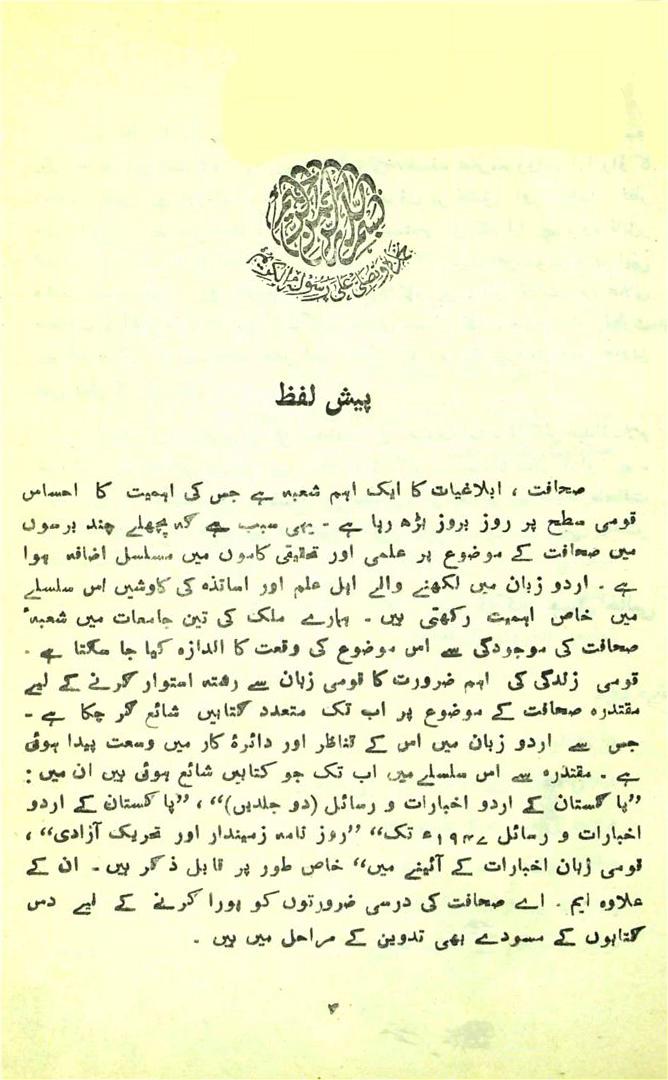 بسم الله الرحمن الرحيم
نحمده و نصلی علی رسوله الکریم
پیش لفظ
صحافت ، ابلاغیات کا ایک اہم شعبہ ہے جس کی اہمیت کا احساس
قومی سطح پر روز بروز بڑھ رہا ہے ۔ یہی سبب ہے کہ پچھلے چند برسوں
میں صحافت کے موضوع پر علمی اور تحقیقی کاموں میں مسلسل اضافہ ہوا
ہے ۔ اردو زبان میں لکھنے والے اہل علم اور اساتذہ کی کاوشیں اس سلسلے
میں خاص اہمیت رکھتی ہیں ۔ ہمارے ملک کی تین جامعات میں شعبۂ
صحافت کی موجودگی سے اس موضوع کی وقعت کا اندازہ کیا جا سکتا ہے ۔
قومی زندگی کی اہم ضرورت کا قومی زبان سے رشتہ استوار کرنے کے لیے
مقتدرہ صحافت کے موضوع پر اب تک متعدد کتابیں شائع کر چکا ہے ۔
جس سے اردو زبان میں اس کے تناظر اور دائرۂ کار میں وسعت پیدا ہوئی
ہے ۔ مقتدرہ سے اس سلسلے میں اب تک جو کتابیں شائع ہوئی ہیں ان میں :
”پاکستان کے اردو اخبارات و رسائل (دو جلدیں)“ ، ”پاکستان کے اردو
اخبارات و رسائل ۱۹۴۷ء تک“ ”روز نامہ زمیندار اور تحریک آزادی“ ،
قومی زبان اخبارات کے آئینے میں“ خاص طور پر قابل ذکر ہیں ۔ ان کے
علاوہ ایم ۔ اے صحافت کی درسی ضرورتوں کو پورا کرنے کے لیے دس
کتابوں کے مسودے بھی تدوین کے مراحل میں ہیں ۔